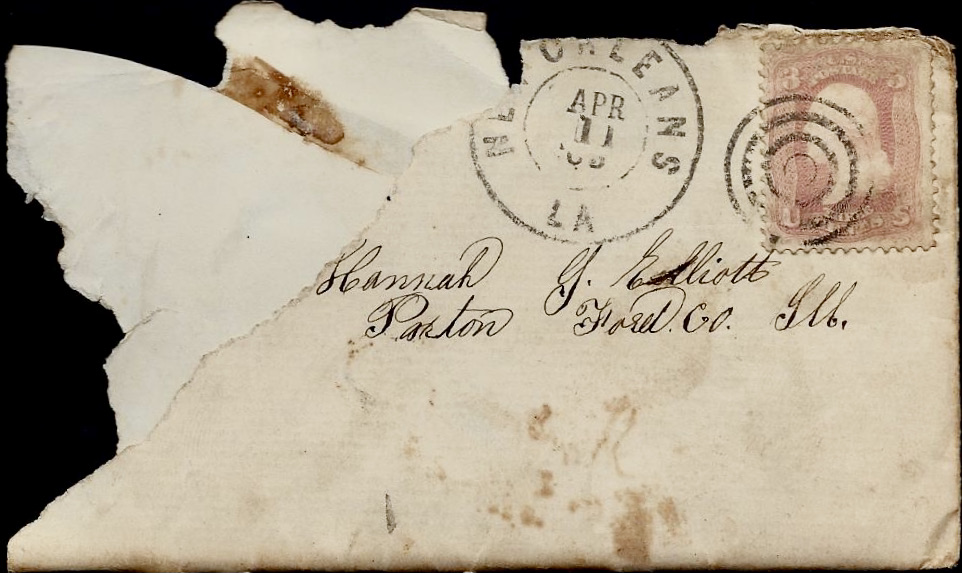 NEW ORLEANS
APR
11
LA
3 3
U S
Hannah J. Elliott
Paxton Ford. Co. Ill.